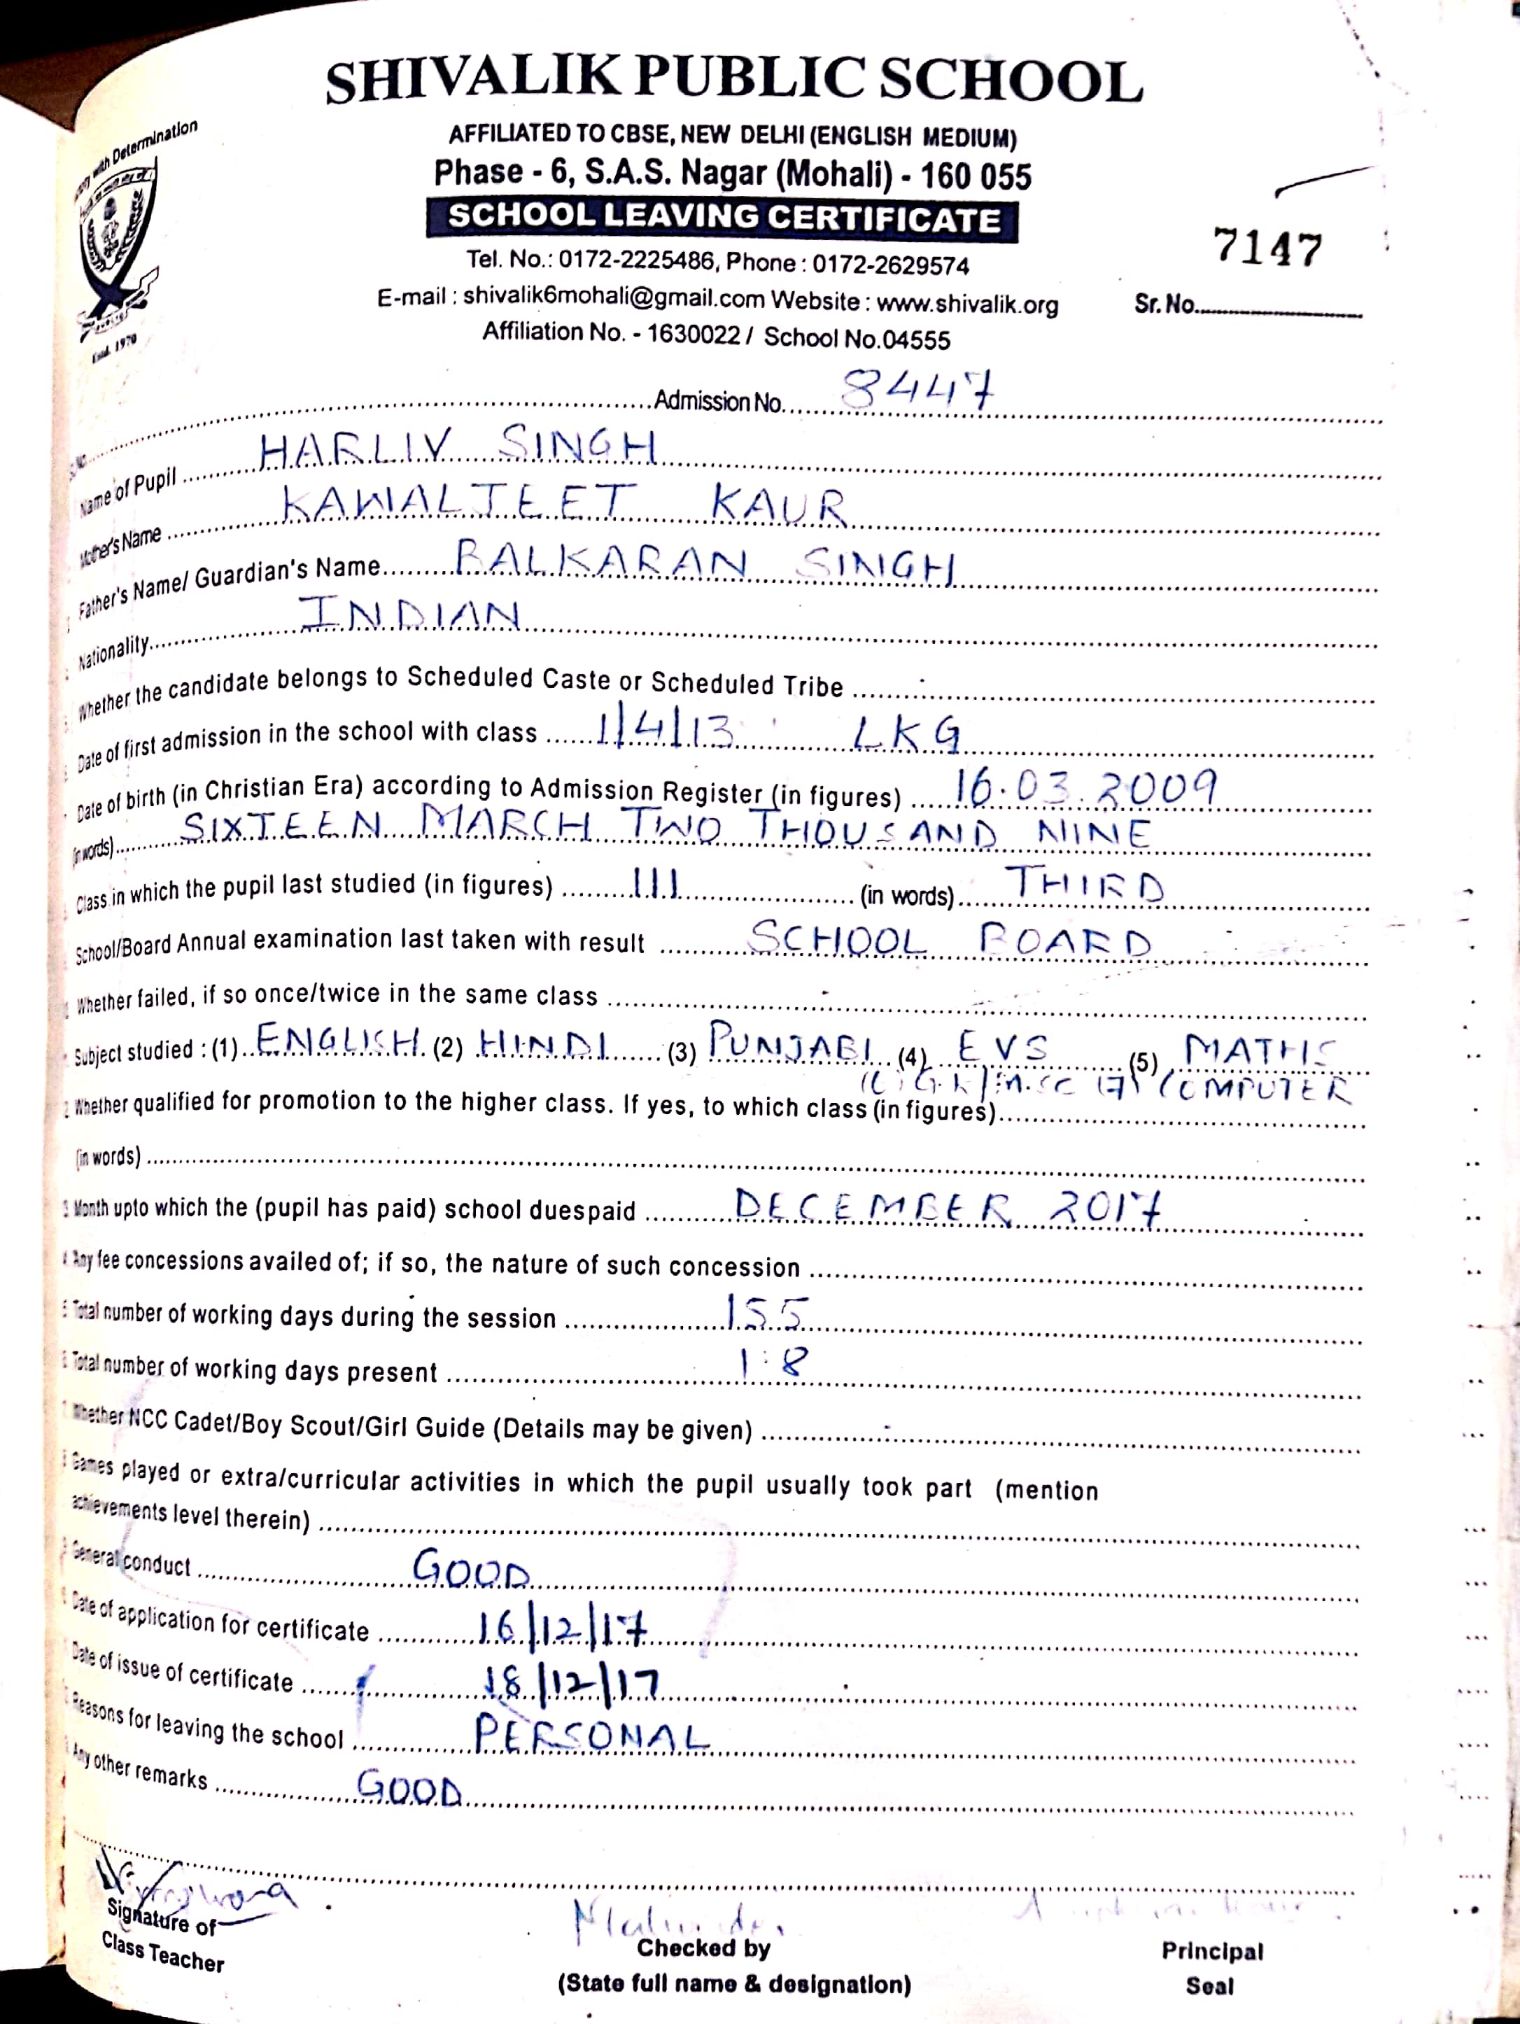 SHIVALIK PUBLIC SCHOOL
with Determination
AFFILIATED TO CBSE, NEW DELHI (ENGLISH MEDIUM)
Phase - 6, S.A.S. Nagar (Mohali) - 160 055
SCHOOL LEAVING CERTIFICATE
7147
Tel. No.: 0172-2225486, Phone : 0172-2629574
E-mail : shivalik6mohali@gmail.com Website : www.shivalik.org
Sr. No.
Affiliation No. - 1630022 / School No.04555
Estd. 1970
Admission No. 8447
Name of Pupil HARLIV SINGH
Mother's Name KAWALJEET KAUR
Father's Name/ Guardian's Name BALKARAN SINGH
Nationality INDIAN
Whether the candidate belongs to Scheduled Caste or Scheduled Tribe
Date of first admission in the school with class 1/4/13 LKG
Date of birth (in Christian Era) according to Admission Register (in figures) 16.03.2009
(in words) SIXTEEN MARCH TWO THOUSAND NINE
Class in which the pupil last studied (in figures) III (in words) THIRD
School/Board Annual examination last taken with result SCHOOL BOARD
Whether failed, if so once/twice in the same class
Subject studied : (1) ENGLISH (2) HINDI (3) PUNJABI (4) EVS (5) MATHS
(7) COMPUTER
Whether qualified for promotion to the higher class. If yes, to which class (in figures)
(in words)
Month upto which the (pupil has paid) school duespaid DECEMBER 2017
Any fee concessions availed of; if so, the nature of such concession
Total number of working days during the session 155
Total number of working days present
Whether NCC Cadet/Boy Scout/Girl Guide (Details may be given)
Games played or extra/curricular activities in which the pupil usually took part (mention
achievements level therein)
General conduct GOOD
Date of application for certificate 16/12/17
Date of issue of certificate 18/12/17
Reasons for leaving the school PERSONAL
Any other remarks GOOD
Signature of
Class Teacher
Checked by
(State full name & designation)
Principal
Seal